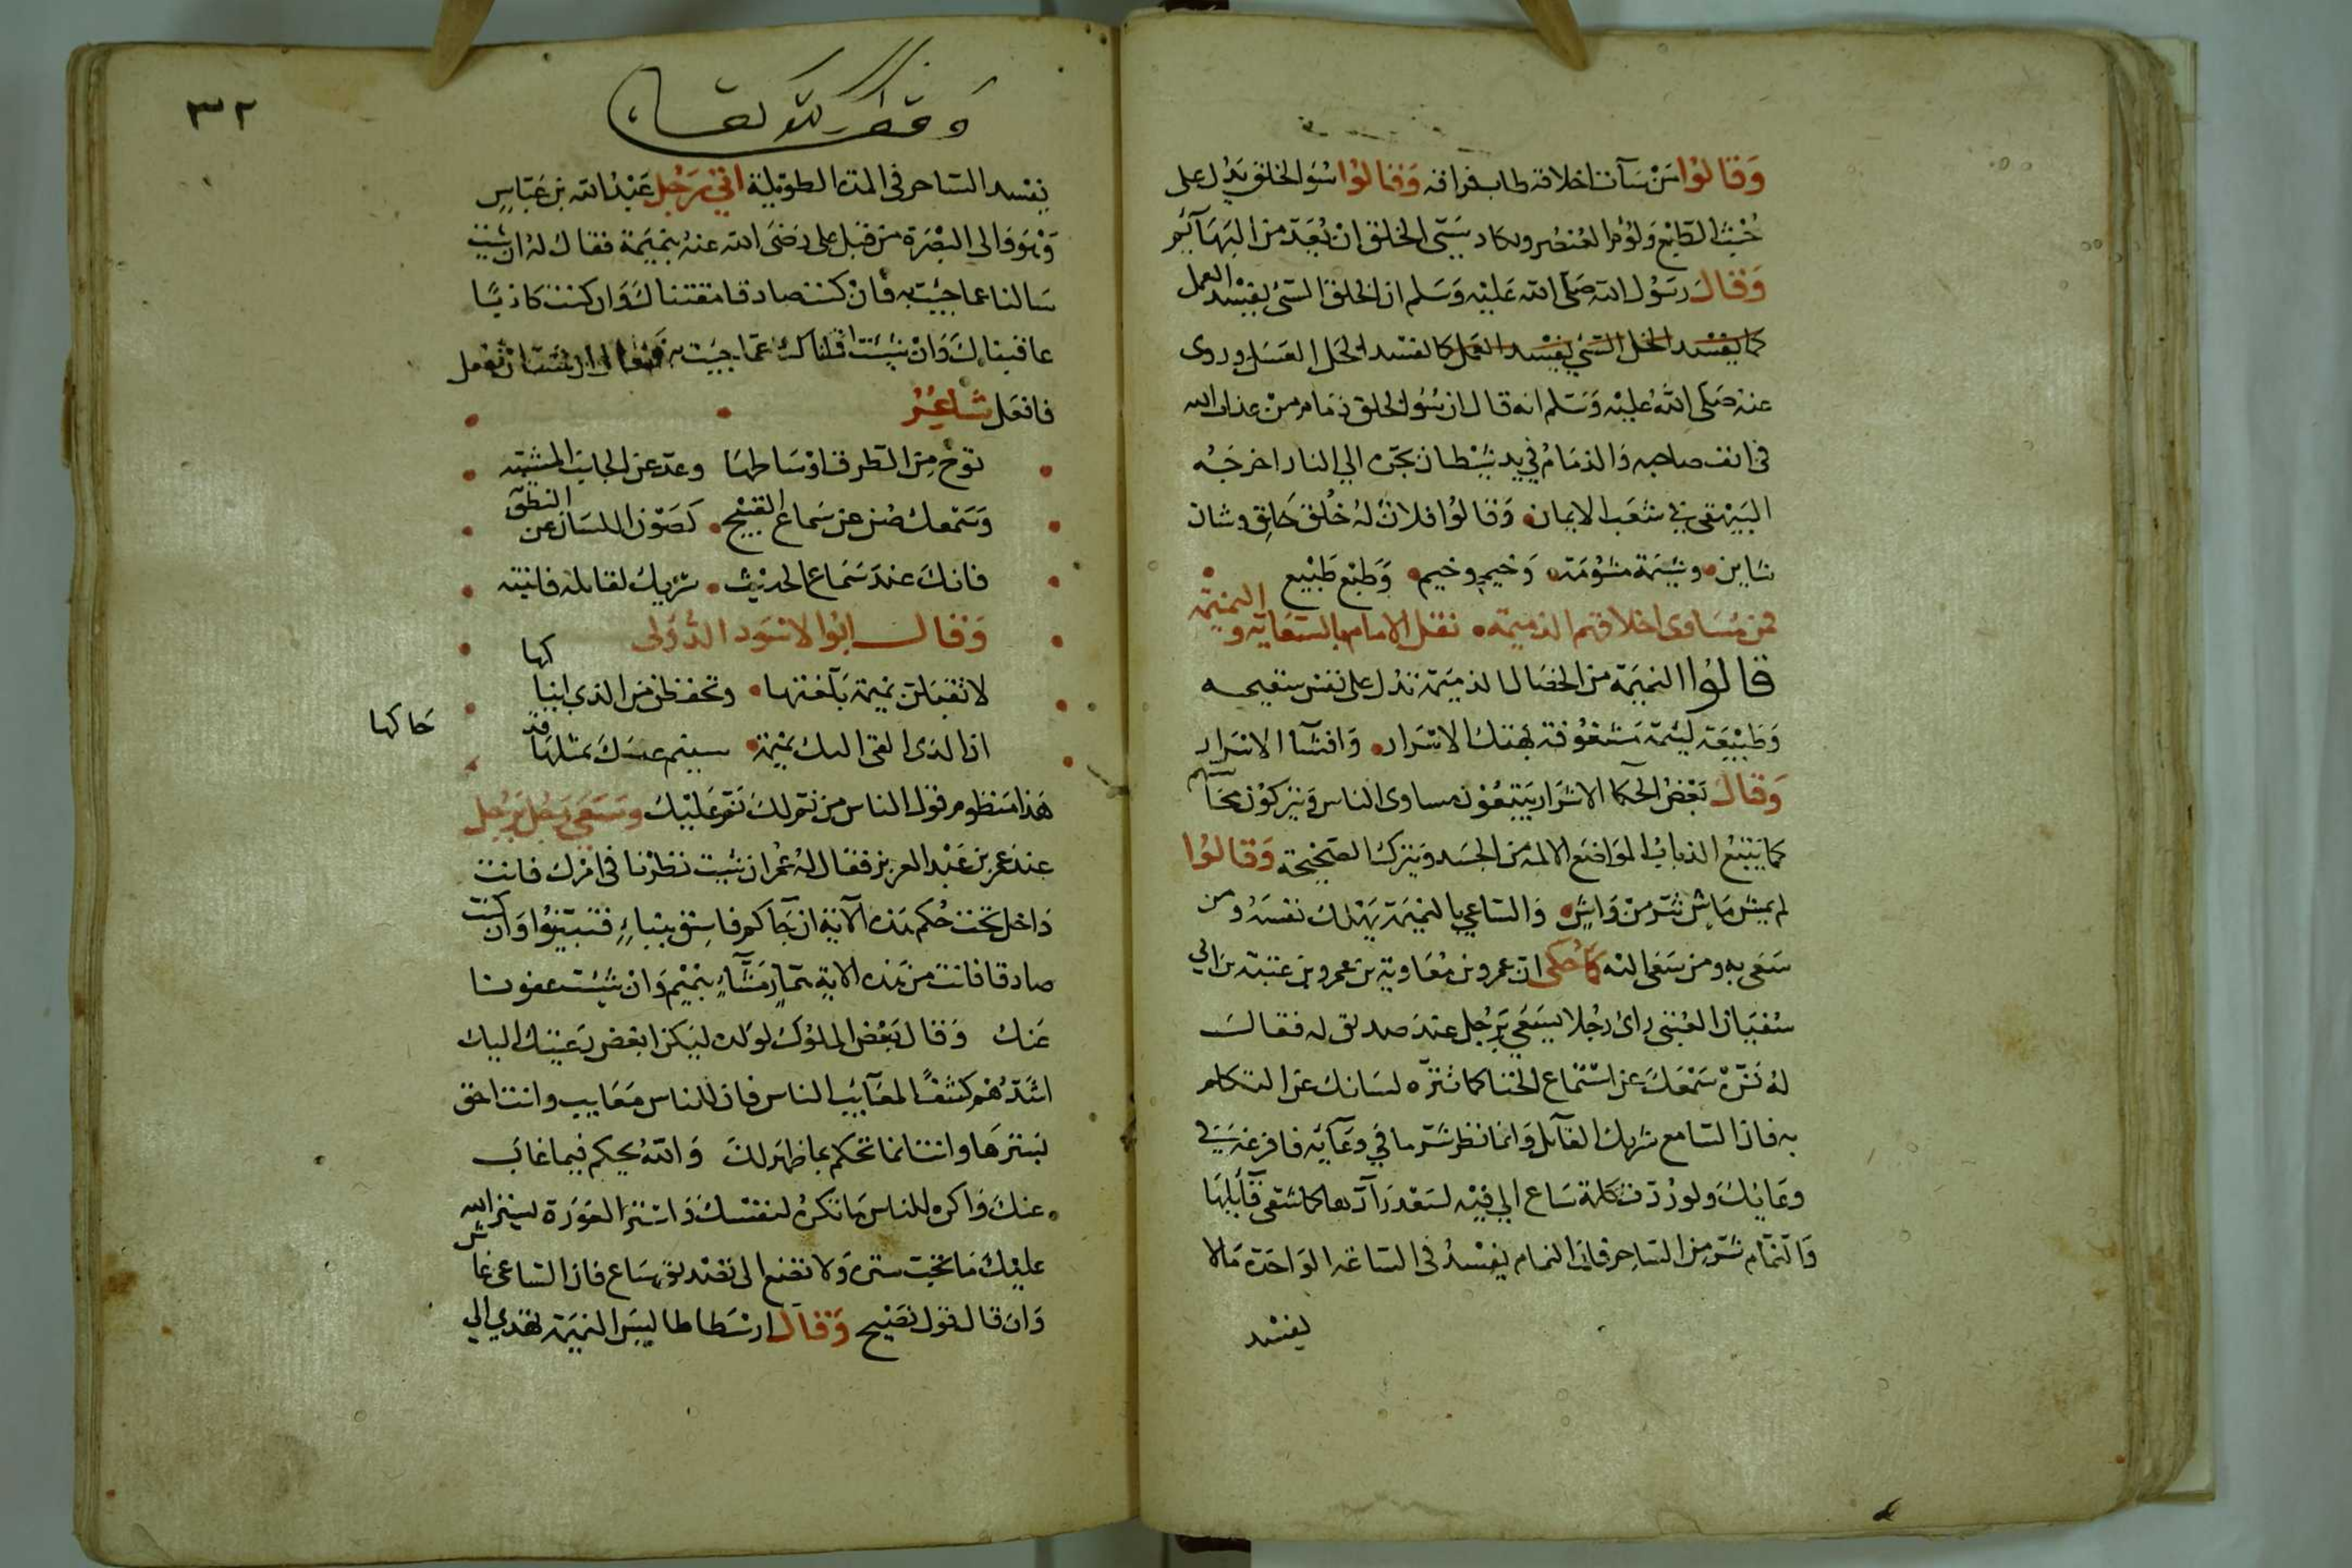 وَقَالوُا مَنْ سَآت اخلاقه طاب فراقه وَقَالوُا سُوَ الخلق يَدُل على
خُبْث الطَّابْع وَلؤم العُنصُر ويكاد سَيّى الخلق انْ يُعَدّ من البَهَآئم
وَقَالَ رَسُول الله صَلى الله عَليْه وَسَلم ان الخلق السّئ ليفسْد العمل
كما يفسْد الخل السّئ يفسْد العمل كما يفسْد الخل العسَل وروى
عنه صَلى اللهُ عليْه وَسَلم انه قال ان سُوء الخلق زمَام منْ عذاب الله
فى انف صاحبه وَالزمَامُ في يد شيْطان يجرّه الي النار اخرجَهُ
البَيْهقى في شعَب الايمان وَقَالوُا فلانٌ لهُ خُلق خَالِق وشان
شاين وشيْمَة مشؤمَة وَخيم وخيم وَطبْع طَبْيع
فمن مسَاوى اخلاقهم الذميمَه نقل الامام بالسّعَايَه و النميْمَة
قالوُا النميمَة من الخصَال الذميمَة تدُل على نفس سقيمه
وَطَبيْعَة لئيمَة مَشغُوفة بهَتك الاسْتَار وَافشآ الاسْرَار
وَقَالَ بَعْضُ الحكمآ الاشرَار يَتبعُوْن مساوى الناس وَيَتركوْن محَآسنهم
كما يَتبَعُ الذبابُ الموَاضع الالمه من الجسَد وَيَترك الصَّحيْحَة وَقَالوُا
لم يمش مَاش شرّ منْ وَاشٍ وَالسّاعي بالنميْمَة يهْلك نفسَهُ ومن
سَعَى به ومن سَعَى اليْه كما حُكى ان عمرو بن مُعَاوية بن عمرو بن عتبَة بن ابي
سُفيَان العُتبى راىَ رجُلا يسَعَي برَجُل عندَ صديق له فقالَ
لهُ نَزّه سَمْعَكَ عن اسْتماع الخنا كما تنزّه لسَانك عن التكلم
به فان السّامع شريك القآيل وَانما نظر شرّ ما في وعَآيه فافرغه في
وعَايكَ وَلو رُدّت كلمة سَاع الي فيْه لسَعْد رَآدّها كما شقى قآيلهَا
وَالنّمّام شرّ من السّاحر فان النمام يفسْدُ فى السّاعَه الوَاحدَة مَالا
يفسْد
٣٢
وقف لله تعالى
يفسْد السّاحر فى المدّه الطويْلة اتى رَجُل عَبْدُ الله بن عَبّاسٍ
وَهوَ وَالى البصْرَة من قبَل على رَضىَ الله عنهُ بنميْمَة فقالَ لهُ ان شيْت
سَالنا عما جيْت به فانْ كنت صادقا مقتناكَ وَان كنت كاذبًا
عاقبناكَ وَانْ شيْت اقلناك عمّا جيْت به فقال ان شيْت انْ تفعل
فافعَل شاعرُ
توخ من الطرق اوْسَاطهَا وعدّ عن الجانب المشتبه
وَسَمْعكَ صُن عن سَماع القبيْح كَصَوْن اللسَان عن النطق
فانكَ عندَ سَماع الحديْث شريْك لقايله فانتبه
وَقَالَ ابُوا الاسْوَد الدُّؤلى
لا تقبَلن نميْمَة بُلغتهَا وتحفظن من الذي انباكها
ان الذى القى اليك نميْمَة سينم عنكَ بمثلهَا قد
حَاكها
هَذا مَنظوم قول الناس من نمّ لكَ نمّ عَليْك وَسَعَى رَجُل برَجُل
عندَ عمر بن عَبْد العزيز فقال لهُ عُمر ان شيْت نظرْنا فى امْركَ فانتَ
دَاخل تحت حُكم هَذه الآيَة ان جَآكم فاسِق بنَباءٍ فتَبَيّنُوا وَان كنت
صادقا فانت من هَذه الايَة همّازٍ مَشّآءٍ بنَميْمٍ وَانْ شيْت عفونا
عَنك وَقَال بَعْض الملوُك لوَلده ليَكن ابغض رَعيّتك اليك
اشدّهُم كشفًا لمعَآيب الناس فان للناس مَعَايب وانت احَق
بسَترهَا وانت انما تحكم بما ظهَر لكَ وَاللهُ يحكم فيما غابَ
عنكَ وَاكره للناس مَا تكرهُ لنفسْكَ وَاسْتر العَوْرَة ليسْتر الله
عليْكَ مَا تحب سترَه وَلا تصْغ الى تصْديق سَاع فان السّاعى غاش
وَان قال قول نصَيْح وَقَالَ ارسْطاطاليسَ النميْمَة تهْدي الي